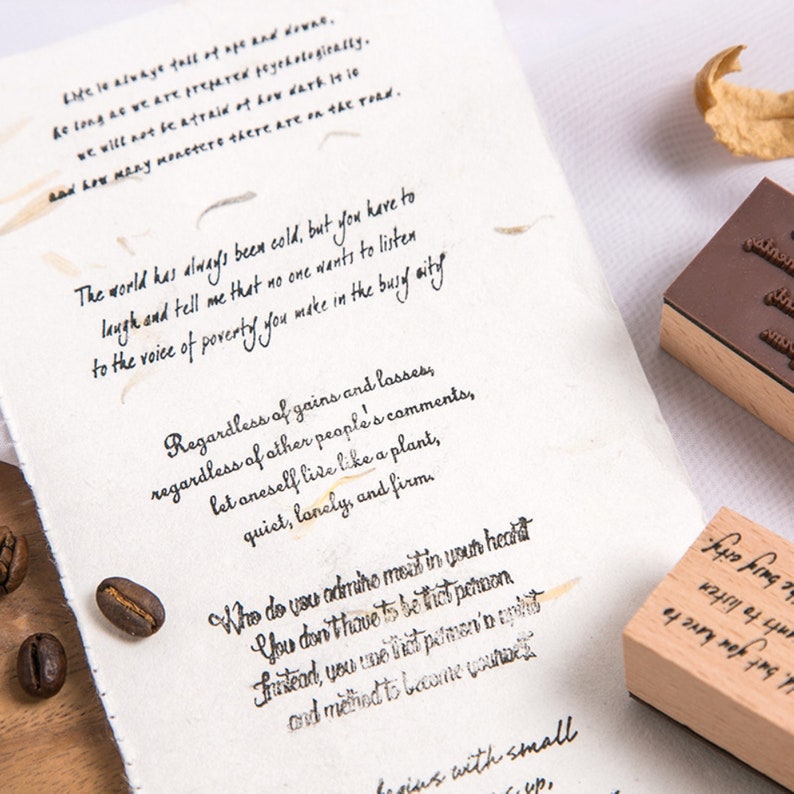 Life is always full of ups and downs.
As long as we are prepared psychologically.
we will not be afraid of how dark it is
and how many monsters there are on the road.
The world has always been cold, but you have to
laugh and tell me that no one wants to listen
to the voice of poverty you make in the busy city
Regardless of gains and losses,
regardless of other people's comments,
let oneself live like a plant,
quiet, lonely, and firm.
Who do you admire most in your heart
You don't have to be that person.
Instead, you use that person's spirit
and method to become yourself.
begins with small
up,
but you have to
wants to listen
the busy city.